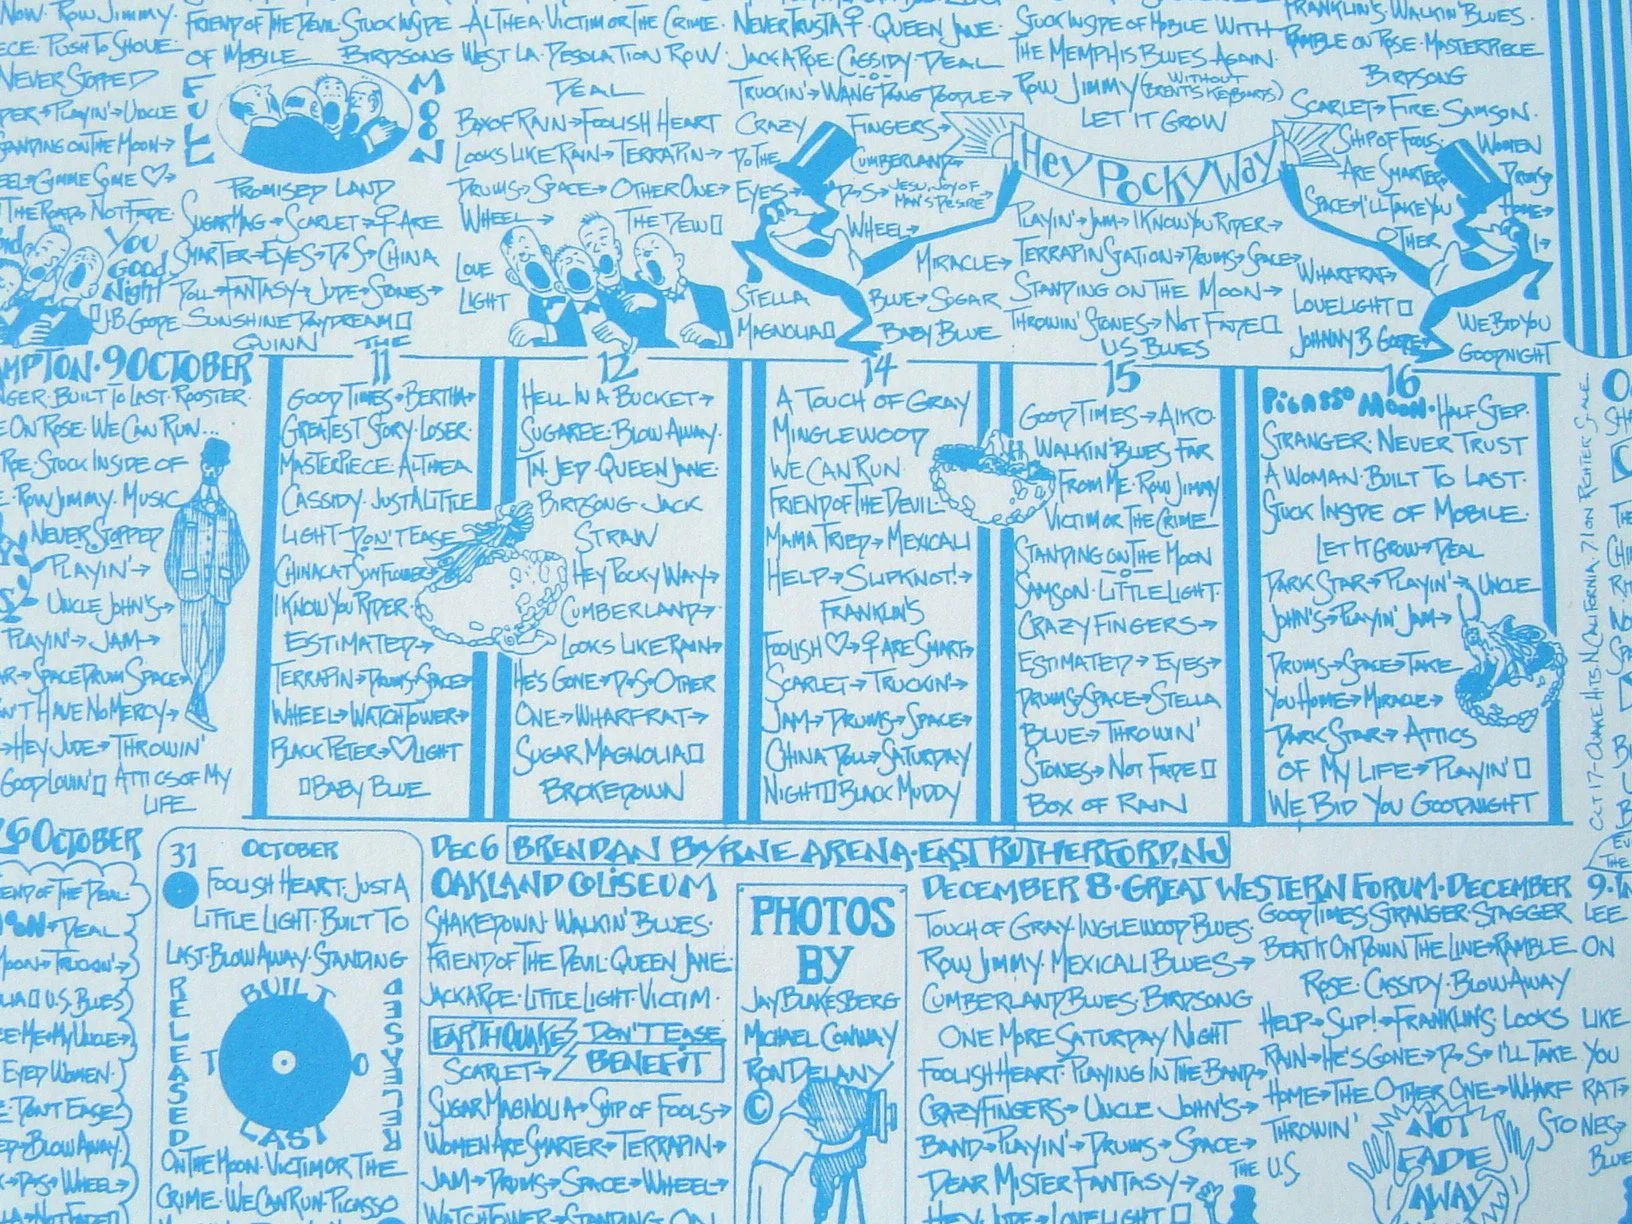 NOW. ROW JIMMY.
PUSH TO SHOVE
NEVER STOPPED
PLAYIN'→UNCLE
STANDING ON THE MOON→
GIMME SOME ♡→
THE ROAD→NOT FADE.
YOU
GOOD
NIGHT
J.B. GOODE
FRIEND OF THE DEVIL. STUCK INSIDE
OF MOBILE BIRDSONG
FULL
MOON
PROMISED LAND
SUGAR MAG→SCARLET→♀ARE
SMARTER→EYES→D→S→CHINA
DOLL→FANTASY→JUDE→STONES→
SUNSHINE DAYDREAM▯
QUINN THE
ALTHEA·VICTIM OR THE CRIME·
WEST LA·DESOLATION ROW·
DEAL
BOX OF RAIN→FOOLISH HEART
LOOKS LIKE RAIN→TERRAPIN→
DRUMS→SPACE→OTHER ONE→
WHEEL→ THE DEW▯
LOVE
LIGHT
NEVER TRUST A ♀·QUEEN JANE·
JACK A ROE·CASSIDY·DEAL
TRUCKIN'→WANG DANG DOODLE→
CRAZY FINGERS→
DO THE CUMBERLAND→
EYES→ D→S→JESU, JOY OF
MAN'S DESIRE
WHEEL→
MIRACLE→
STELLA BLUE→SUGAR
MAGNOLIA▯ BABY BLUE
STUCK INSIDE OF MOBILE WITH
THE MEMPHIS BLUES AGAIN·
ROW JIMMY (WITHOUT
BRENT'S KEYBOARDS)
LET IT GROW
HEY POCKY WAY
PLAYIN'→JAM→I KNOW YOU RIDER→
TERRAPIN STATION→DRUMS→SPACE→
STANDING ON THE MOON→
THROWIN' STONES→NOT FADE▯
U.S. BLUES
FRANKLIN'S·WALKIN' BLUES·
RAMBLE ON ROSE·MASTERPIECE
BIRDSONG
SCARLET→FIRE·SAMSON·
SHIP OF FOOLS· WOMEN
ARE SMARTER→ DRUMS→
SPACE→I'LL TAKE YOU HOME→
OTHER 1→
WHARF RAT→
LOVELIGHT▯
JOHNNY B GOODE
WE BID YOU
GOODNIGHT
9 OCTOBER
BUILT TO LAST·ROOSTER·
ON ROSE·WE CAN RUN...
STUCK INSIDE OF
ROW JIMMY·MUSIC
NEVER STOPPED
PLAYIN'→
UNCLE JOHN'S→
PLAYIN'→JAM→
SPACE DRUM SPACE→
HAVE NO MERCY→
→HEY JUDE→THROWIN'
GOOD LOVIN'▯ ATTICS OF MY
LIFE
11
GOOD TIMES→BERTHA→
GREATEST STORY·LOSER·
MASTERPIECE·ALTHEA
CASSIDY·JUST A LITTLE
LIGHT·DON'T EASE
CHINACAT SUNFLOWER→
I KNOW YOU RIDER·
ESTIMATED→
TERRAPIN→DRUMS→SPACE→
WHEEL→WATCHTOWER→
BLACK PETER→♡LIGHT
▯BABY BLUE
12
HELL IN A BUCKET→
SUGAREE·BLOW AWAY·
TN JED·QUEEN JANE·
BIRDSONG·JACK
STRAW
HEY POCKY WAY→
CUMBERLAND→
LOOKS LIKE RAIN→
HE'S GONE→D→S→OTHER
ONE→WHARF RAT→
SUGAR MAGNOLIA▯
BROKEDOWN
14
A TOUCH OF GRAY
MINGLEWOOD
WE CAN RUN
FRIEND OF THE DEVIL·
MAMA TRIED→MEXICALI
HELP→SLIPKNOT!→
FRANKLIN'S
FOOLISH ♡→♀ARE SMART→
SCARLET→TRUCKIN'→
JAM→DRUMS→SPACE→
CHINA DOLL→SATURDAY
NIGHT▯BLACK MUDDY
15
GOOD TIMES→AIKO·
WALKIN' BLUES·FAR
FROM ME·ROW JIMMY
VICTIM OR THE CRIME·
STANDING ON THE MOON
SAMSON·LITTLE LIGHT·
CRAZY FINGERS→
ESTIMATED→EYES→
DRUMS→SPACE→STELLA
BLUE→THROWIN'
STONES→NOT FADE▯
BOX OF RAIN
16
PICASSO MOON·HALF STEP·
STRANGER·NEVER TRUST
A WOMAN·BUILT TO LAST·
STUCK INSIDE OF MOBILE·
LET IT GROW→DEAL
DARK STAR→PLAYIN'→UNCLE
JOHN'S→PLAYIN' JAM→
DRUMS→SPACE→TAKE
YOU HOME→MIRACLE→
DARK STAR→ATTICS
OF MY LIFE→PLAYIN'▯
WE BID YOU GOODNIGHT
OCT 17-QUAKE HITS N. CALIFORNIA, 7.1 ON RICHTER SCALE·
26 OCTOBER
FRIEND OF THE DEVIL·
DEAL
MOON→TRUCKIN'→
U.S. BLUES
ME→MY UNCLE→
EYED WOMEN·
DON'T EASE·
BLOW AWAY·
D→S→WHEEL→
NOT FADE▯
31 OCTOBER
FOOLISH HEART·JUST A
LITTLE LIGHT·BUILT TO
LAST·BLOW AWAY·STANDING
BUILT TO LAST
RELEASED
ON THE MOON·VICTIM OR THE
CRIME·WE CAN RUN·PICASSO
DEC 6 BRENDAN BYRNE ARENA·EAST RUTHERFORD, NJ
OAKLAND COLISEUM
SHAKEDOWN·WALKIN' BLUES·
FRIEND OF THE DEVIL·QUEEN JANE·
JACK A ROE·LITTLE LIGHT·VICTIM·
EARTHQUAKE DON'T EASE
SCARLET→ BENEFIT
SUGAR MAGNOLIA→SHIP OF FOOLS→
WOMEN ARE SMARTER→TERRAPIN→
JAM→DRUMS→SPACE→WHEEL→
WATCHTOWER→STANDING ON
PHOTOS
BY
JAY BLAKESBERG
MICHAEL CONWAY
RON DELANY
©
DECEMBER 8·GREAT WESTERN FORUM·DECEMBER 9·
TOUCH OF GRAY·INGLEWOOD BLUES·
ROW JIMMY·MEXICALI BLUES→
CUMBERLAND BLUES·BIRDSONG
ONE MORE SATURDAY NIGHT
FOOLISH HEART·PLAYING IN THE BAND→
CRAZY FINGERS→UNCLE JOHN'S→
BAND→PLAYIN'→DRUMS→SPACE→
DEAR MISTER FANTASY→
HEY JUDE→LOVELIGHT▯
GOOD TIMES·STRANGER·STAGGER LEE
BEAT IT ON DOWN THE LINE→RAMBLE ON
ROSE·CASSIDY·BLOW AWAY
HELP→SLIP!→FRANKLIN'S LOOKS LIKE
RAIN→HE'S GONE→D→S→I'LL TAKE YOU
HOME→THE OTHER ONE→WHARF RAT→
THROWIN' STONES→
NOT
FADE
AWAY
THE U.S. BLUES